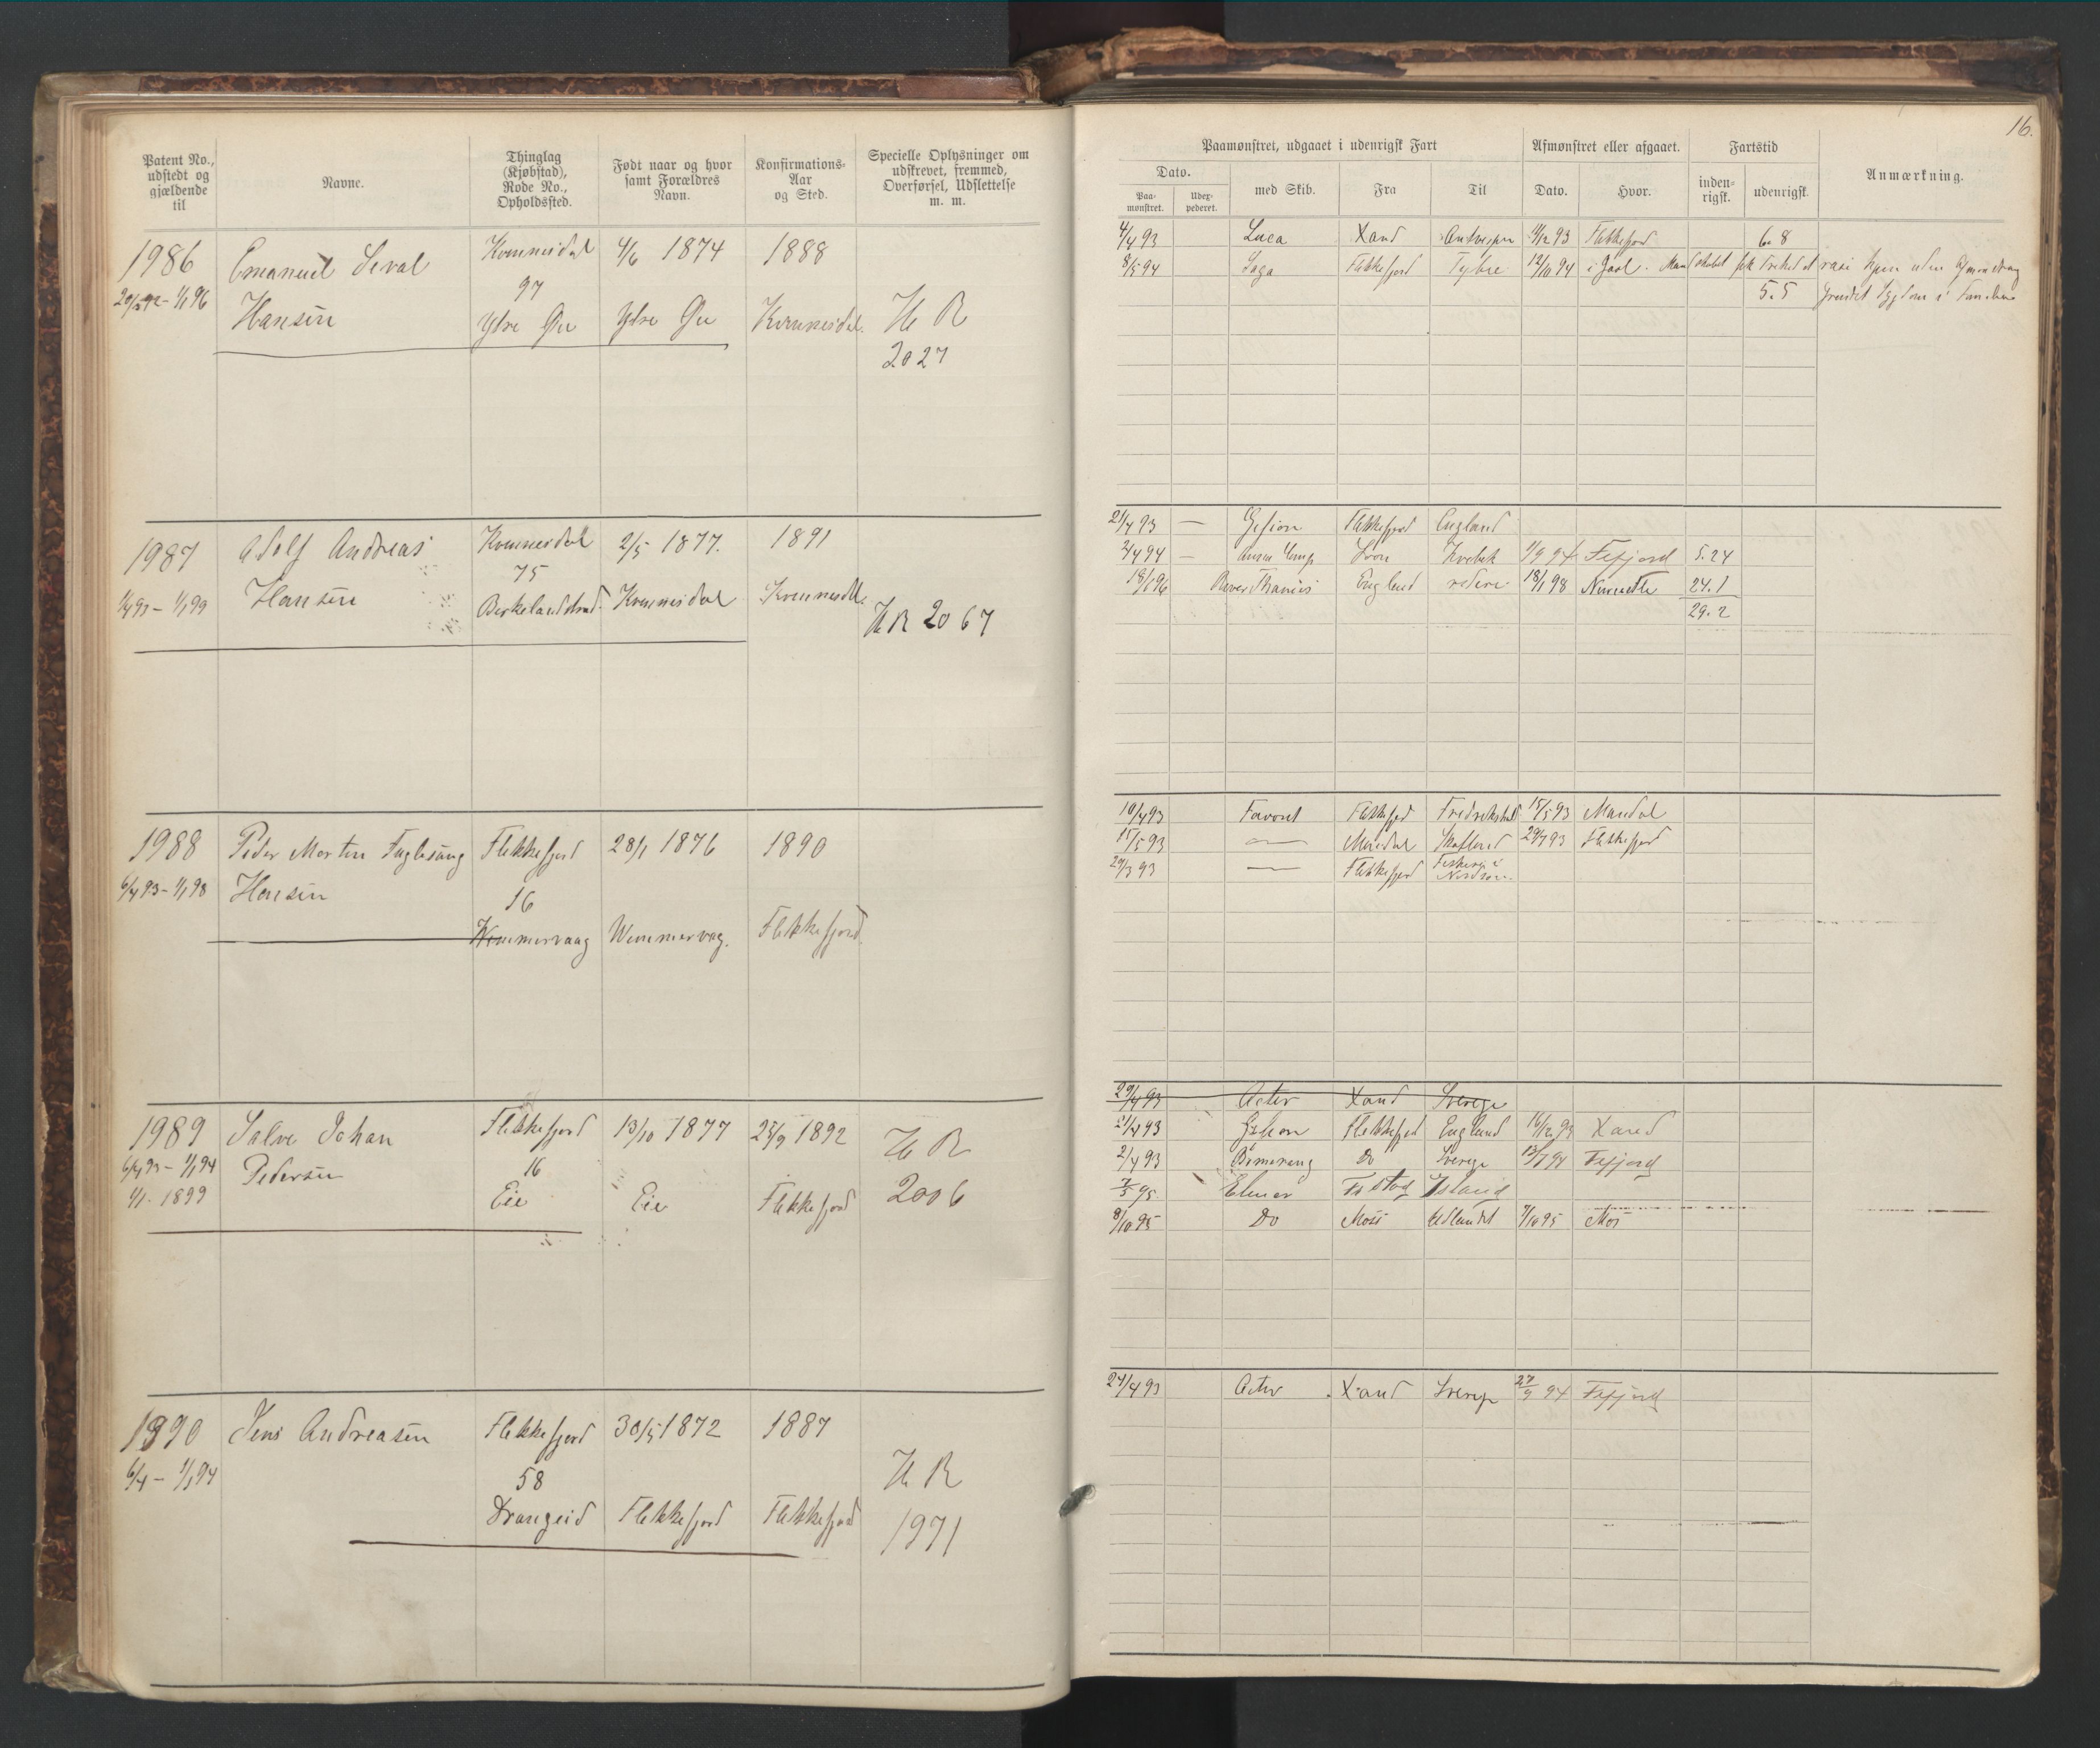 16.
Patent No., udstedt og gjældende til
Navne.
Thinglag (Kjøbstad), Rode No., Opholdssted.
Født naar og hvor samt Forældres Navn.
Konfirmations-Aar og Sted.
Specielle Oplysninger om udskrevet, fremmed, Overførsel, Udslettelse m. m.
Paamønstret, udgaaet i udenrigsk Fart
Afmønstret eller afgaaet.
Fartstid
Anmærkning.
Dato.
med Skib.
Fra
Til
Dato.
Hvor.
inden-rigsk.
udenrigsk.
Paa-mønstret.
1986 Emanuel Seval Kvinnesdal 4/6 1874 1888
97
Hansen Ytre Kvinnesdal. H R
2027
4/4 93 Luca Xand Antverpen 4/12 93 Flekkefjord 6. 8
8/5 94 Saga Flekkefjord Tybee 12/10 94
5. 5
1987 Adolf Andreas Kvinnesdal 2/5 1877. 1891
75
1/4 93 – 1/1 99 Hansen Birkelandstrand Kvinnesdal H R 2067
21/4 93 — Gefion Flekkefjord England
2/4 94 — Anna 1/9 94 Fefjord 5. 24
18/1 96 England 18/1 98 24. 1
29. 2
1988 Peder Morten Fuglesang Flekkefjord 28/1 1876 1890
6/4 93 – 1/1 98 Hansen 16
Wimmervaag Wimmervag. Flekkefjord.
10/4 93 Favorit Flekkefjord 15/5 93 Mandal
15/5 93 — Mandal 29/7 93 Flekkefjord
29/3 93 — Flekkefjord Fiskeri i Nordsøen
1989 Salve Johan Flekkefjord 13/10 1877 25/9 1892 H R
6/4 93 – 1/1 94 Pedersen 16
1/1. 1899 Eie Eie Flekkefjord 2006
29/4 93 Activ Xand Sverige
21/4 93 Gefion Flekkefjord England 16/12 93 Xand
2/4 93 Bomerang Do Sverige Fefjord
7/5 95 Elmar Island
8/10 95 Do Moss Udlandet 9/10 95 Moss
1990 Jens Andreasen Flekkefjord 30/5 1872 1887
6/4 – 1/1 94 58 H R
Drangeid Flekkefjord Flekkefjord 1971
27/4 93 Activ Xand Sverige 27/9 94 Fefjord